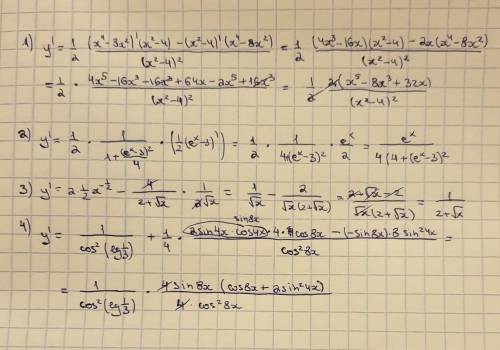 1) y' = 1/2 (x⁴-8x²)'(x²-4) - (x²-4)'(x⁴-8x²) / (x²-4)² = 1/2 (4x³-16x)(x²-4) - 2x(x⁴-8x²) / (x²-4)²
= 1/2 · 4x⁵-16x³-16x³+64x-2x⁵+16x³ / (x²-4)² = 1/2 2(x⁵-8x³+32x) / (x²-4)²
2) y' = 1/2 · 1 / 1+(eˣ-3)²/4 · (1/2(eˣ-3)') = 1/2 · 1 / 4(eˣ-3)² · eˣ/2 = eˣ / 4(4+(eˣ-3)²
3) y' = 2 1/2 x^(-1/2) - 4 / 2+√x · 1 / 2√x = 1/√x - 2 / √x(2+√x) = 2+√x-2 / √x(2+√x) = 1 / 2+√x
4) y' = 1 / cos²(lg 1/3) + 1/4 · sin8x 2sin4x·cos4x · 4 · cos8x - (-sin8x)·8 sin²4x / cos²8x =
= 1 / cos²(lg 1/3) · 4sin8x (cos8x + 2sin²4x) / 4 · cos²8x